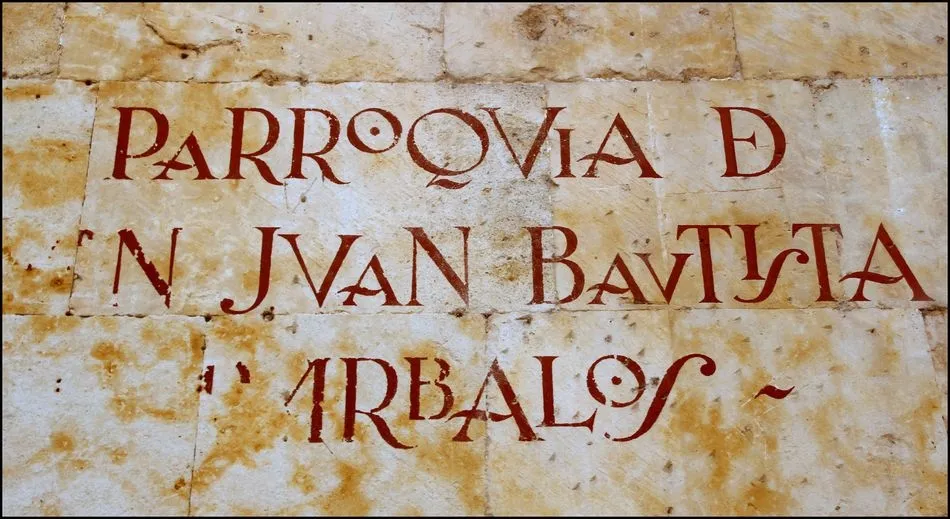 PARROQVIA DE
N JVAN BAVTISTA
ARBALOS ~